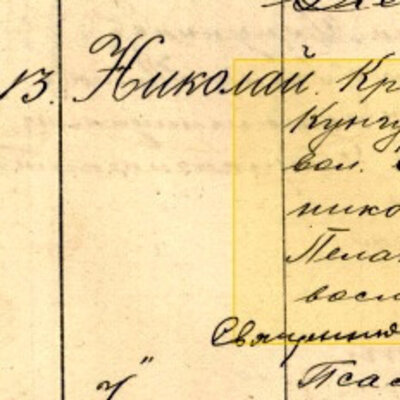 13. Николай. Кр
Кунгу
вол.
нико
Пела
восл
Священни
Псас